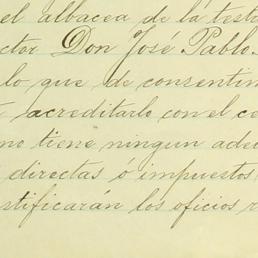 el albacea de la test
ctor Don José Pablo
lo que de consentin
acreditarlo con el ce
no tiene ningun ade
directas ó impuestos
stificarán los oficios r